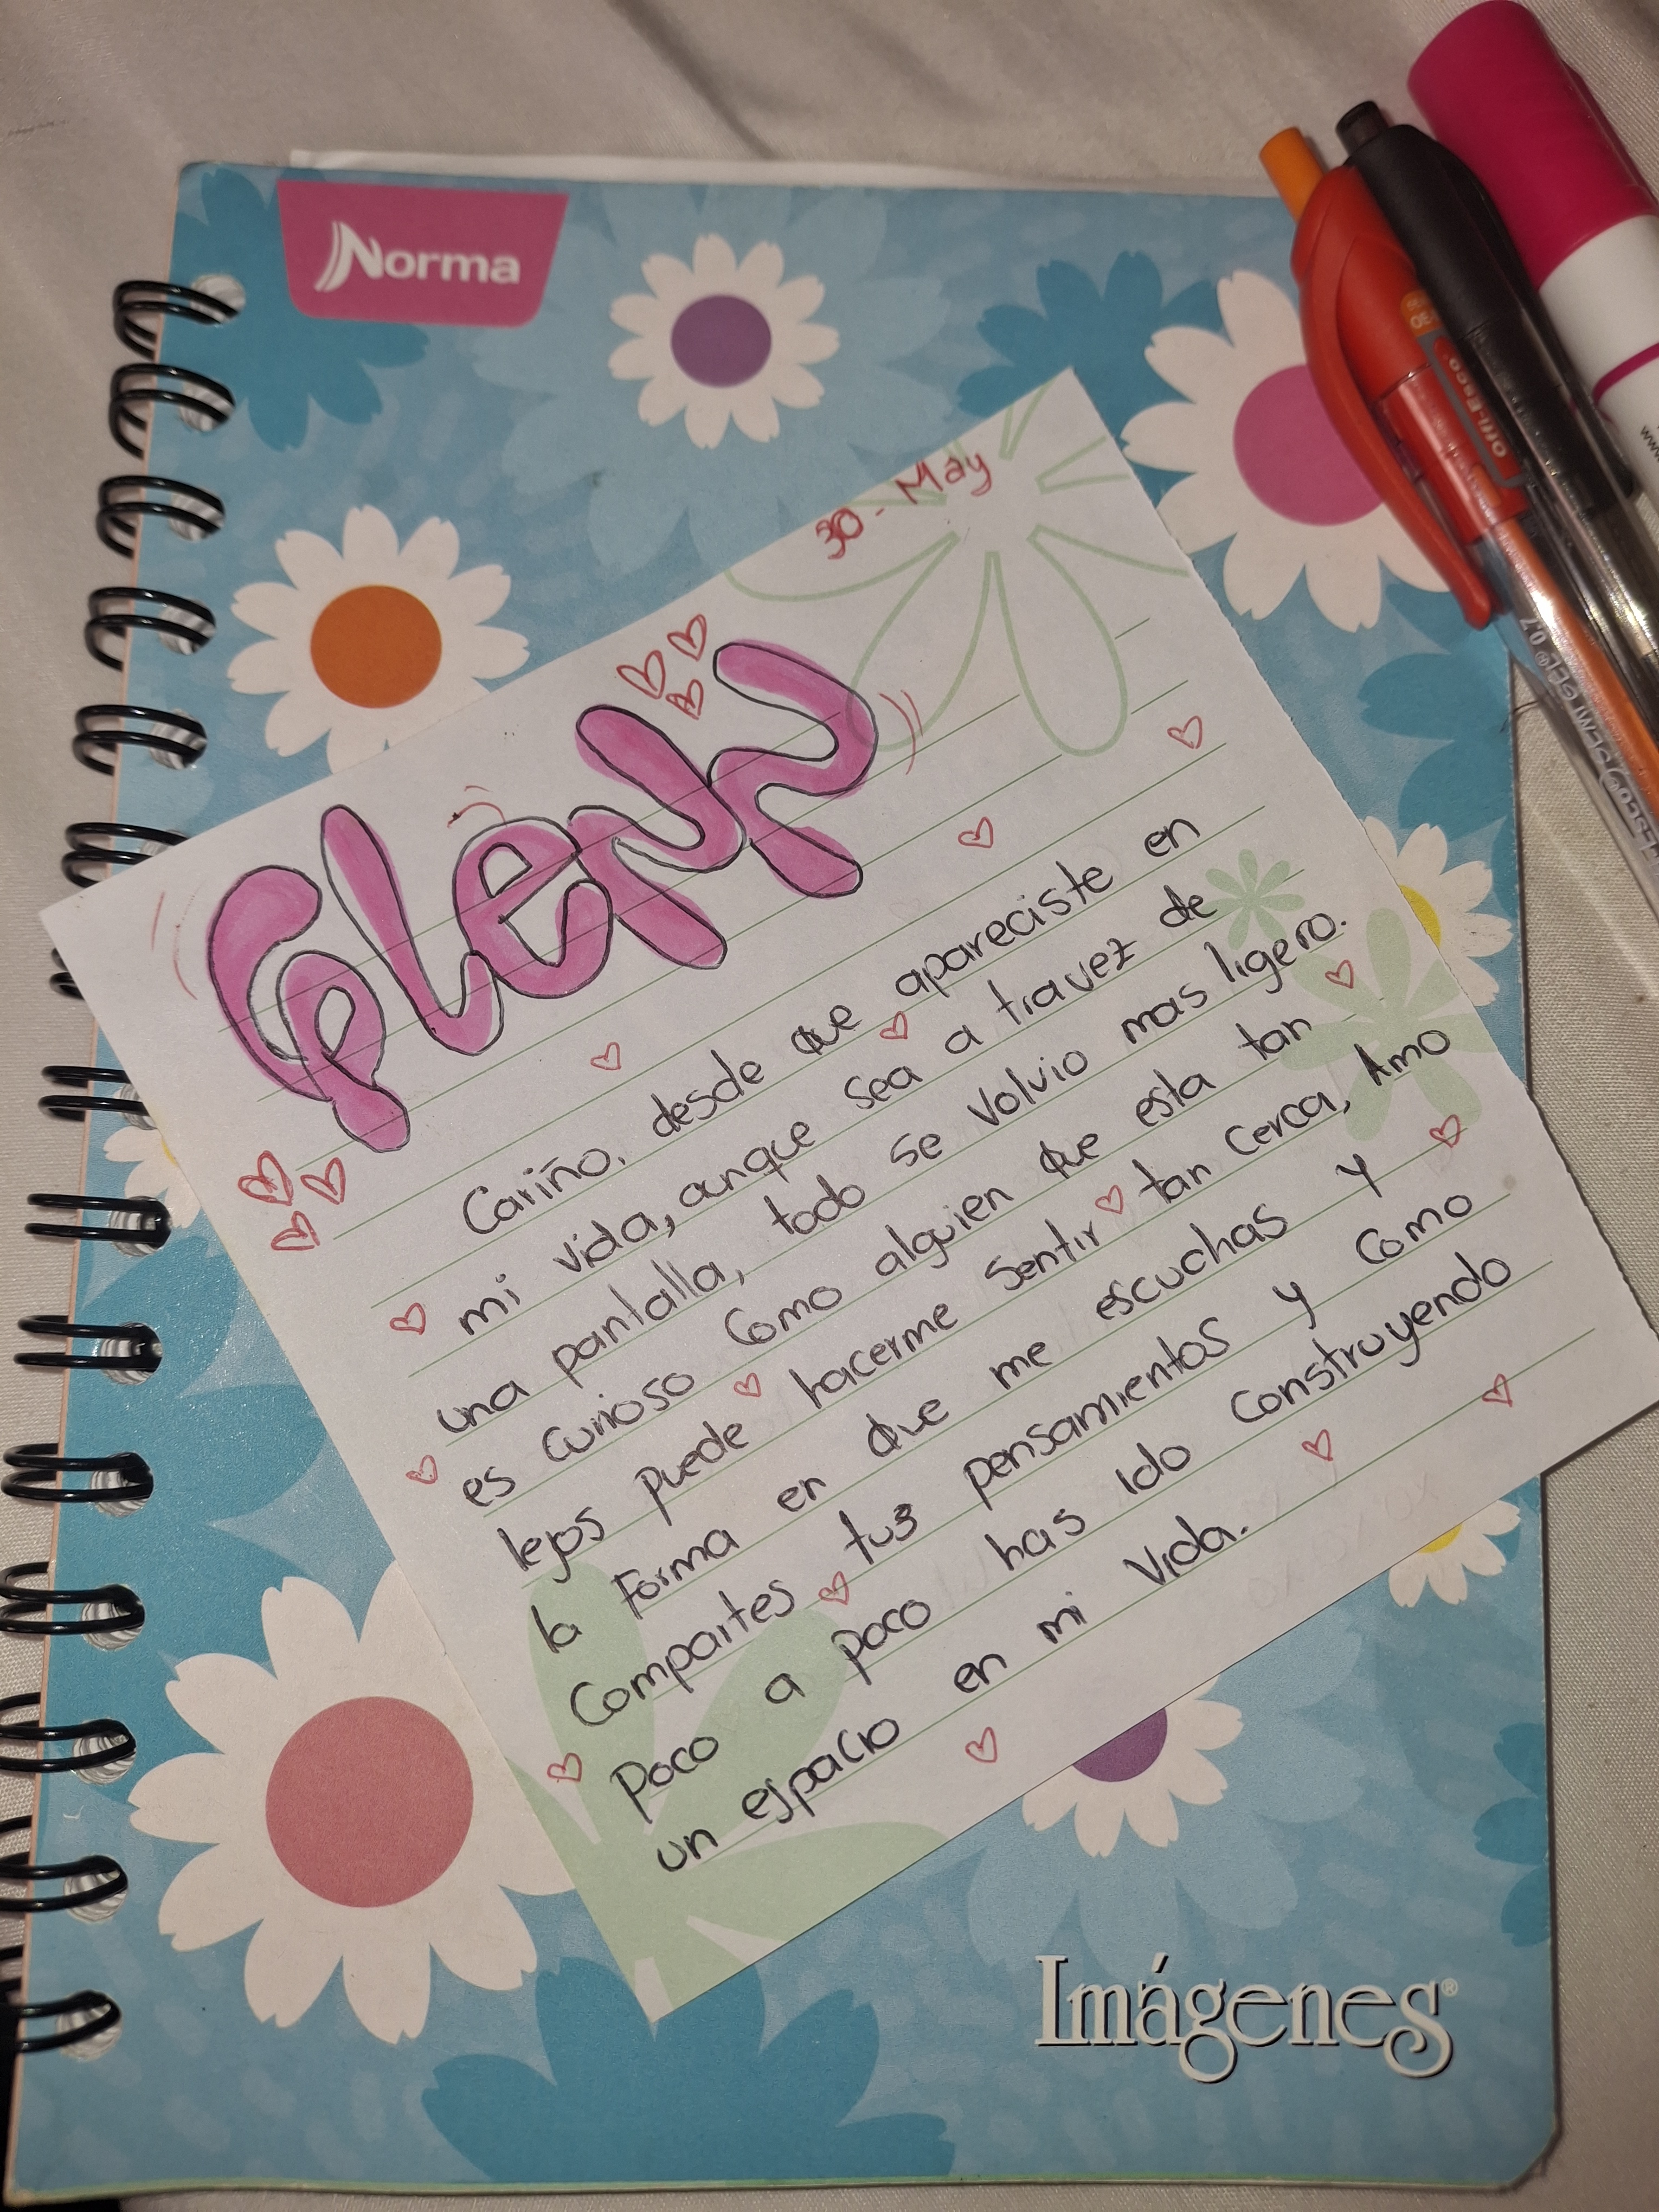 Norma
30 - May
Glenn
Cariño, desde que apareciste en
mi vida, aunque sea a travez de
una pantalla, todo se volvio mas ligero.
es curioso como alguien que esta tan
lejos puede hacerme sentir tan cerca, Amo
la Forma en que me escuchas y
Compartes tus pensamientos y como
Poco a poco has ido construyendo
un espacio en mi vida.
Imágenes®
Offi-Esco
0.7